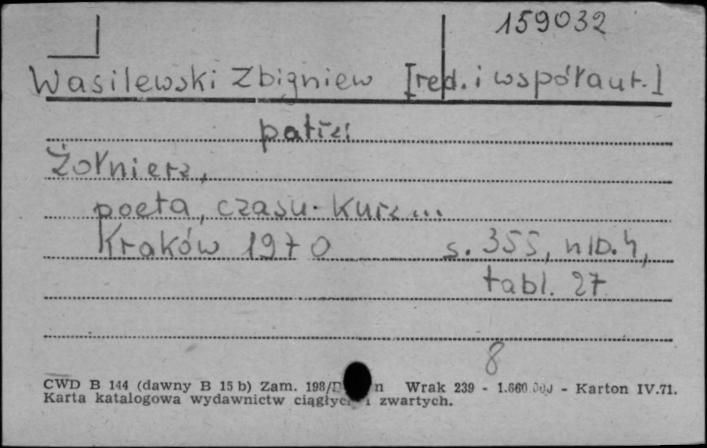 159032
Wasilewski Zbigniew [red. i współaut.]
patrz:
Żołnierz,
poeta, czasu kurz...
Kraków 1970 s. 355, nlb. 4,
tabl. 27
8
CWD B 144 (dawny B 15 b) Zam. 198/ n Wrak 239 - 1.660.000 - Karton IV.71.
Karta katalogowa wydawnictw ciągłych i zwartych.